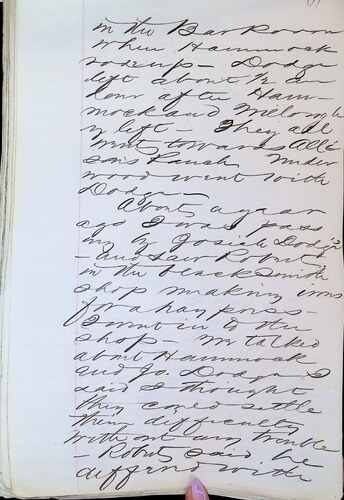 in the Bar Room
when Hammock
rode up – Dodge
left about ½ an
hour after Ham-
mock and
y left – They all
went towards Alli
sons Ranch Under
wood went with
Dodge –
About a year
ago I was pass
ing by Josiah Dodge's
– and saw Roberts
in the blacksmith
shop making irons
for a hay press –
I went in to the
shop – We talked
about Hammock
and Jo. Dodge – I
said I thought
they could settle
their difficulty
with out any trouble
– Roberts said he
differed with